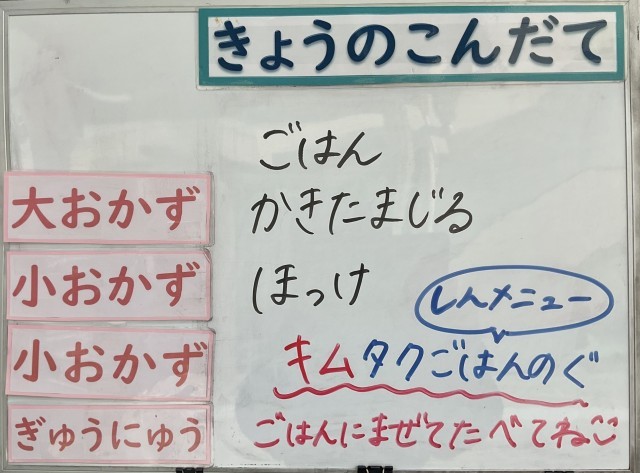 きょうのこんだて
ごはん
大おかず かきたまじる
小おかず ほっけ
しんメニュー
小おかず キムタクごはんのぐ
ぎゅうにゅう ごはんにまぜてたべてね